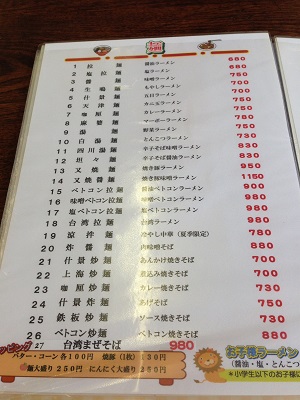 1 拉麺 醤油ラーメン 680
2 塩拉麺 塩ラーメン 680
3 醤麺 味噌ラーメン 750
4 生碼麺 もやしラーメン 700
5 什景麺 五目ラーメン 750
6 天津麺 カニ玉ラーメン 750
7 咖厘麺 カレーラーメン 700
8 麻婆麺 マーボーラーメン 780
9 湯麺 野菜ラーメン 750
10 白湯麺 とんこつラーメン 730
11 四川湯麺 辛子そば味噌ラーメン 830
12 坦々麺 辛子そば醤油ラーメン 830
13 叉焼麺 焼き豚ラーメン
14 叉焼醤麺 焼き豚味噌ラーメン 1150
15 ベトコン拉麺 醤油ベトコンラーメン 900
16 味噌ベトコン拉麺 味噌ベトコンラーメン 980
17 塩ベトコン拉麺 塩ベトコンラーメン 980
18 台湾拉麺 台湾ラーメン
19 涼拌麺 冷やし中華(夏季限定) 880
20 炸醤麺 肉味噌そば 780
21 什景炒麺 あんかけ焼きそば 750
22 上海炒麺 煮込み焼きそば 750
23 咖厘炒麺 カレー焼きそば 730
24 什景炸麺 あげそば 750
25 鉄板炒麺 ソース焼きそば 730
26 ベトコン炒麺 ベトコン焼きそば 880
27 台湾まぜそば 980
ッピング
バター・コーン 各100円 焼豚(1枚)130円
麺大盛り250円 にんにく大盛り200円
お子様ラーメン
(醤油・塩・とんこつ
*小学生以下のお子様に